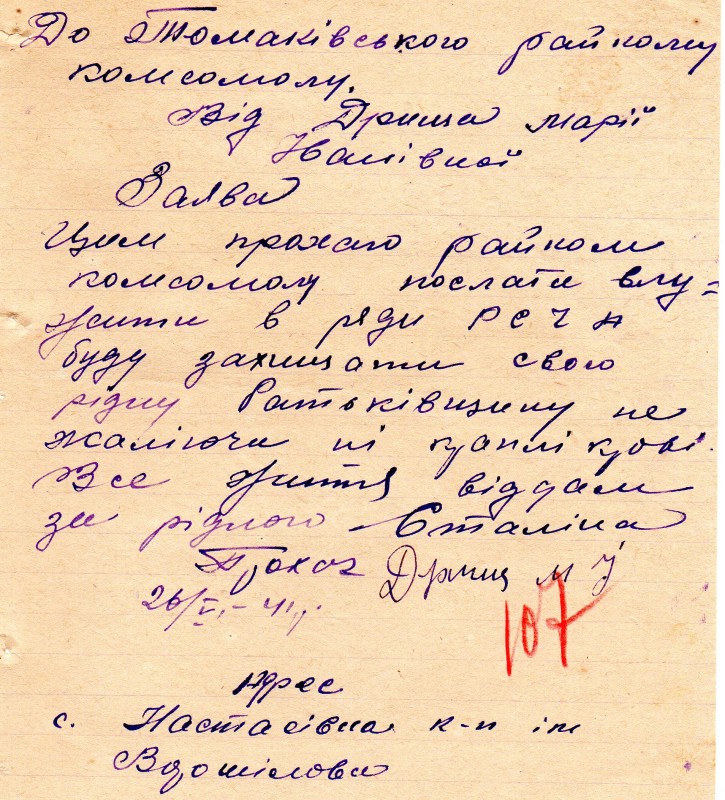 До Томаківського райкому
комсомолу.
Від Дрища марії
Іванівної
Заява
Цим прохаю райком
комсомолу послати влу=
жити в ряди РСЧА
буду захищати свою
рідну Батьківщину не
жаліючи ні краплі крові.
Все життя віддам
за рідного Сталіна
Прохач Дрищ м І
26/VI-41р.
107
Адрес
с. Настасівка к-п ім
Ворошілова